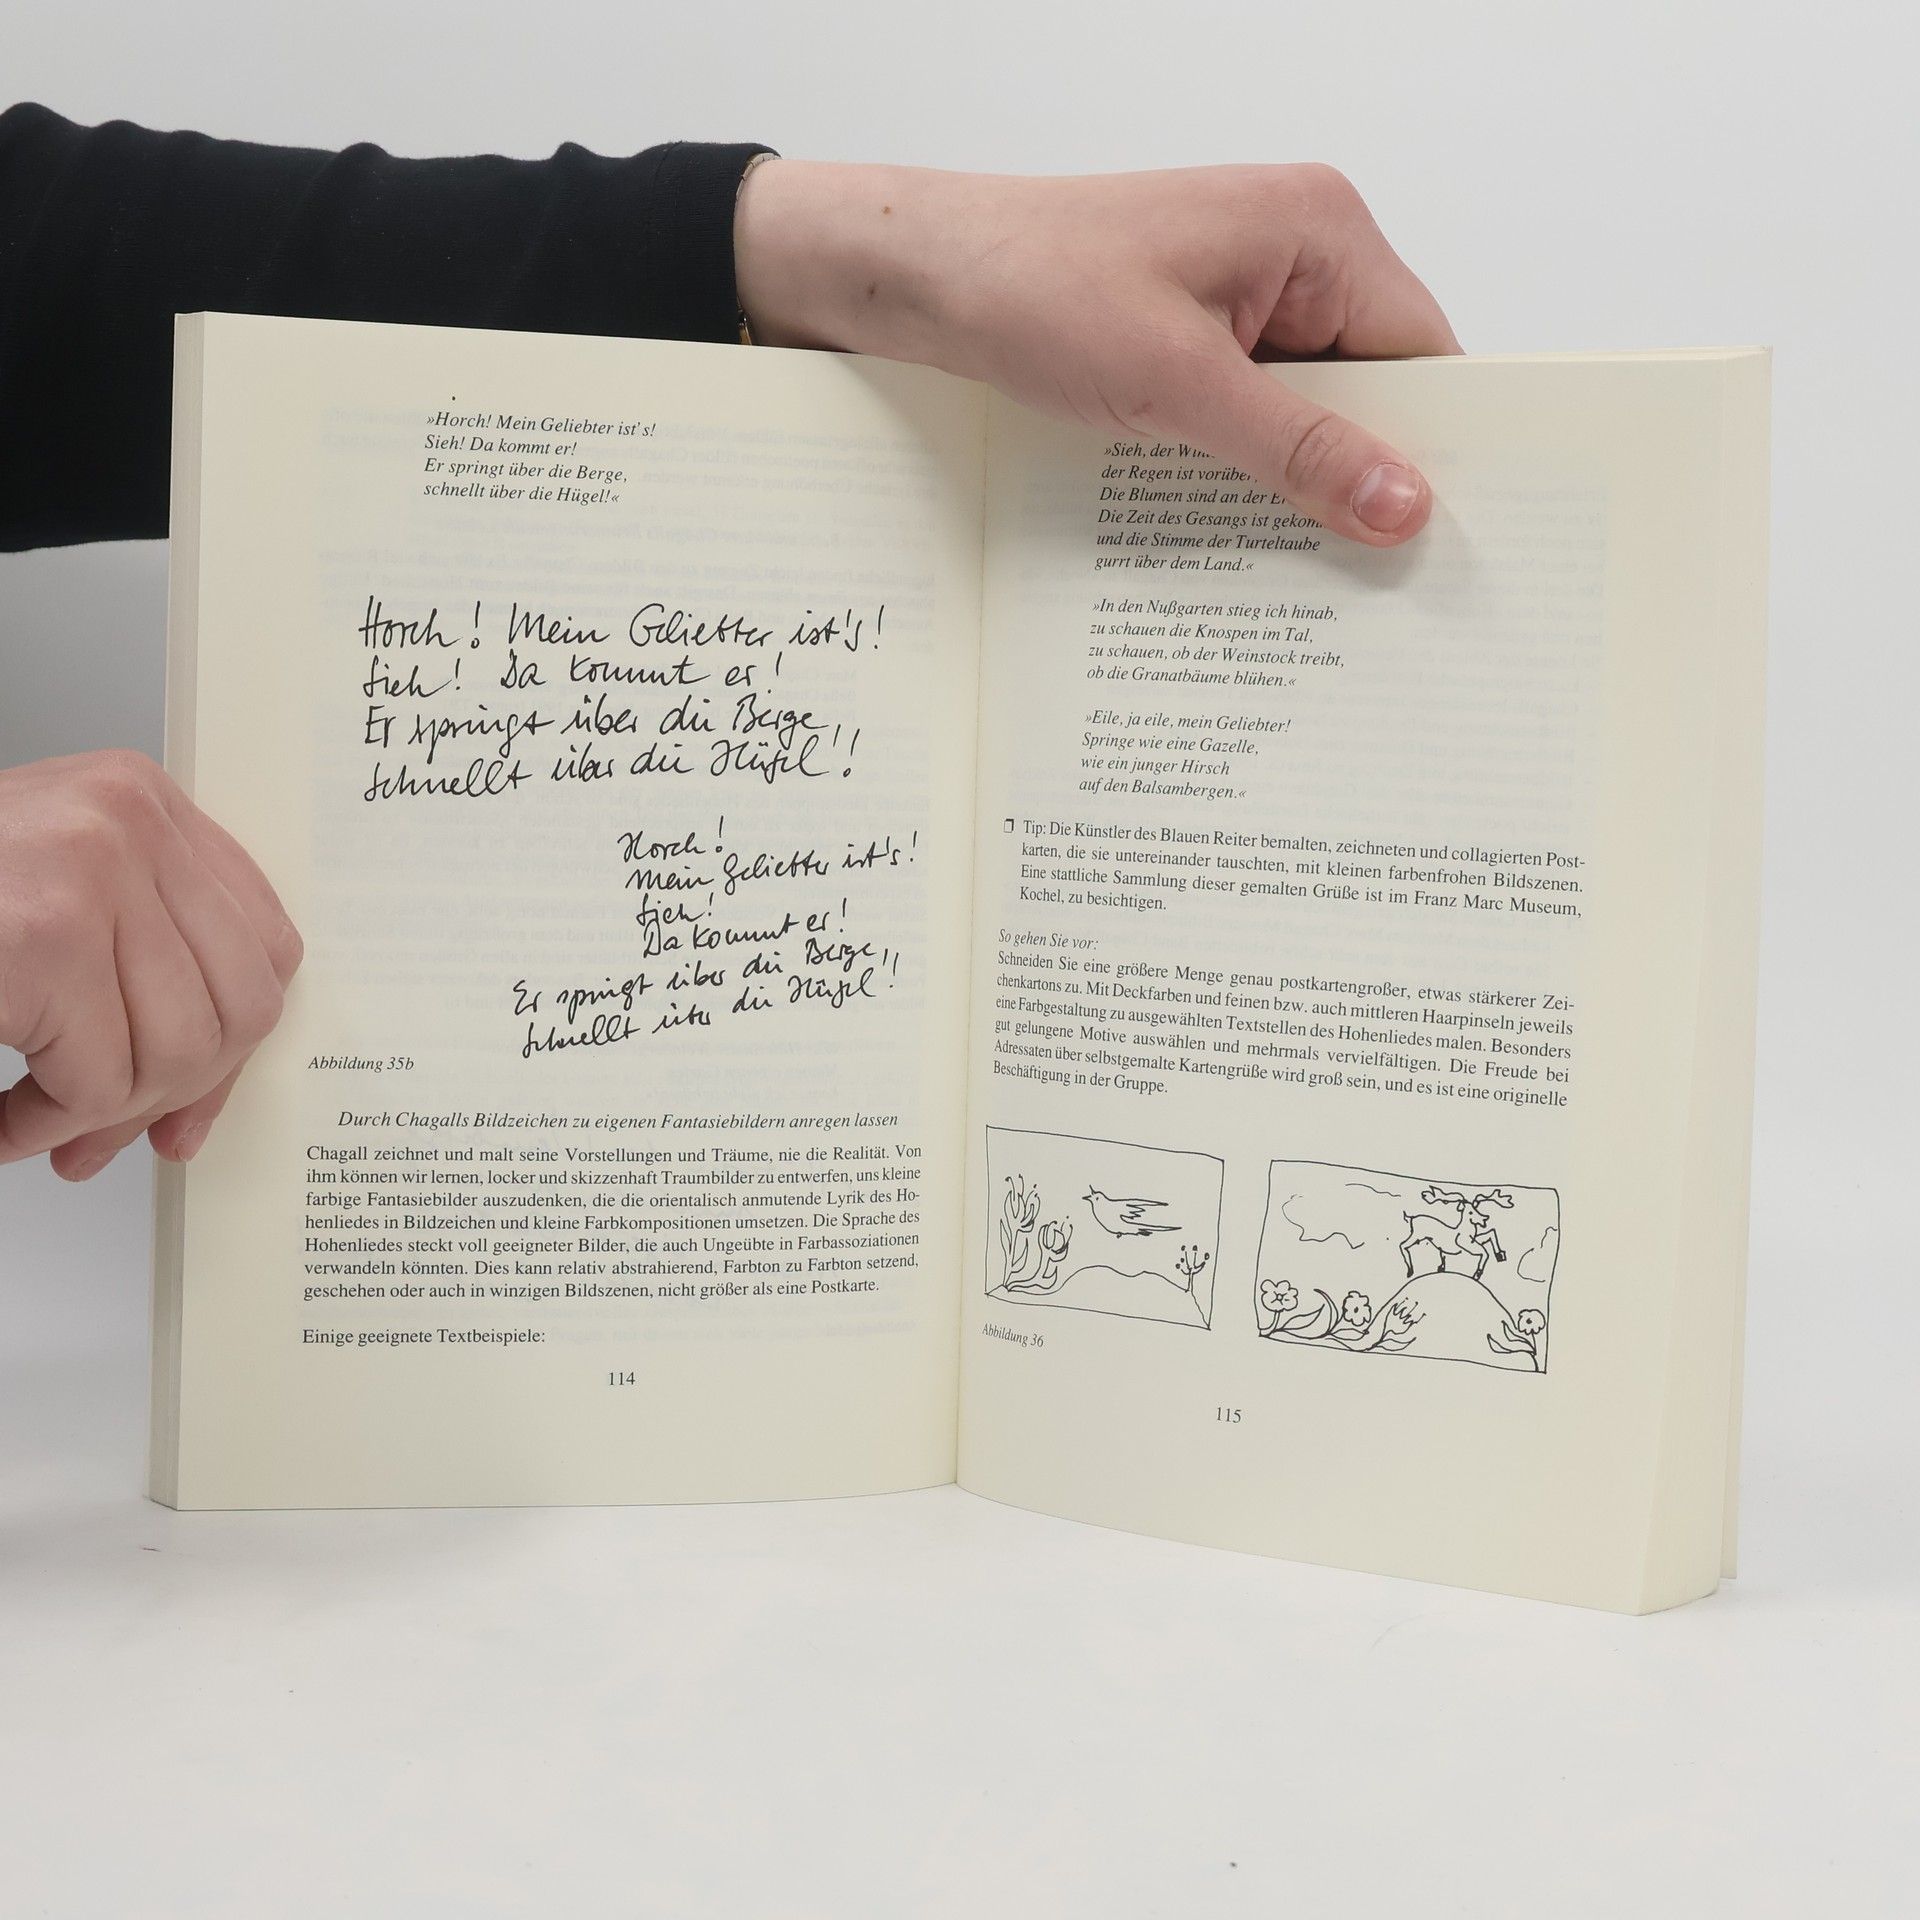 »Horch! Mein Geliebter ist's!
Sieh! Da kommt er!
Er springt über die Berge,
schnellt über die Hügel!«
Horch! Mein Geliebter ist's!
Sieh! Da kommt er!
Er springt über die Berge,
schnellt über die Hügel!
Horch!
Mein Geliebter ist's!
Sieh!
Da kommt er!
Er springt über die Berge,
schnellt über die Hügel!
Abbildung 35b
Durch Chagalls Bildzeichen zu eigenen Fantasiebildern anregen lassen
Chagall zeichnet und malt seine Vorstellungen und Träume, nie die Realität. Von
ihm können wir lernen, locker und skizzenhaft Traumbilder zu entwerfen, uns kleine
farbige Fantasiebilder auszudenken, die die orientalisch anmutende Lyrik des Ho-
henliedes in Bildzeichen und kleine Farbkompositionen umsetzen. Die Sprache des
Hohenliedes steckt voll geeigneter Bilder, die auch Ungeübte in Farbassoziationen
verwandeln könnten. Dies kann relativ abstrahierend, Farbton zu Farbton setzend,
geschehen oder auch in winzigen Bildszenen, nicht größer als eine Postkarte.
Einige geeignete Textbeispiele:
114
»Sieh, der
der Regen ist vorüber,
Die Blumen sind an der
Die Zeit des Gesangs ist
und die Stimme der Turteltaube
gurrt über dem Land.«
»In den Nußgarten stieg ich hinab,
zu schauen die Knospen im Tal,
zu schauen, ob der Weinstock treibt,
ob die Granatbäume blühen.«
»Eile, ja eile, mein Geliebter!
Springe wie eine Gazelle,
wie ein junger Hirsch
auf den Balsambergen.«
❐ Tip: Die Künstler des Blauen Reiter bemalten, zeichneten und collagierten Post-
karten, die sie untereinander tauschten, mit kleinen farbenfrohen Bildszenen.
Eine stattliche Sammlung dieser gemalten Grüße ist im Franz Marc Museum,
Kochel, zu besichtigen.
So gehen Sie vor:
Schneiden Sie eine größere Menge genau postkartengroßer, etwas stärkerer Zei-
chenkartons zu. Mit Deckfarben und feinen bzw. auch mittleren Haarpinseln jeweils
eine Farbgestaltung zu ausgewählten Textstellen des Hohenliedes malen. Besonders
gut gelungene Motive auswählen und mehrmals vervielfältigen. Die Freude bei
Adressaten über selbstgemalte Kartengrüße wird groß sein, und es ist eine originelle
Beschäftigung in der Gruppe.
Abbildung 36
115